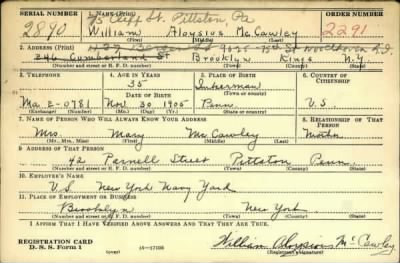 75 Cliff St. Pittston, Pa
SERIAL NUMBER 1. NAME (Print) ORDER NUMBER
2890 William Aloysius McCawley 2291
(First) (Middle) (Last)
2. ADDRESS (Print)
9025 - 75th St Woodhaven
246 Cumberland St Brooklyn Kings N.Y.
(Number and street or R. F. D. number) (Town) (County) (State)
3. TELEPHONE 4. AGE IN YEARS 5. PLACE OF BIRTH 6. COUNTRY OF CITIZENSHIP
35 Inkerman
DATE OF BIRTH (Town or county)
Ma 2-0781 Nov 30 1905 Penn U.S.
(Exchange) (Number) (Mo.) (Day) (Yr.) (State or country)
7. NAME OF PERSON WHO WILL ALWAYS KNOW YOUR ADDRESS 8. RELATIONSHIP OF THAT PERSON
Mrs. Mary McCawley Mother
(Mr., Mrs., Miss) (First) (Middle) (Last)
9. ADDRESS OF THAT PERSON
42 Parnell Street Pittston Penn.
(Number and street or R. F. D. number) (Town) (County) (State)
10. EMPLOYER'S NAME
U.S. New York Navy Yard
11. PLACE OF EMPLOYMENT OR BUSINESS
Brooklyn New York
(Number and street or R. F. D. number) (Town) (County) (State)
I AFFIRM THAT I HAVE VERIFIED ABOVE ANSWERS AND THAT THEY ARE TRUE.
REGISTRATION CARD
D. S. S. Form 1 (over) 16-17105 William Aloysius McCawley
(Registrant's signature)